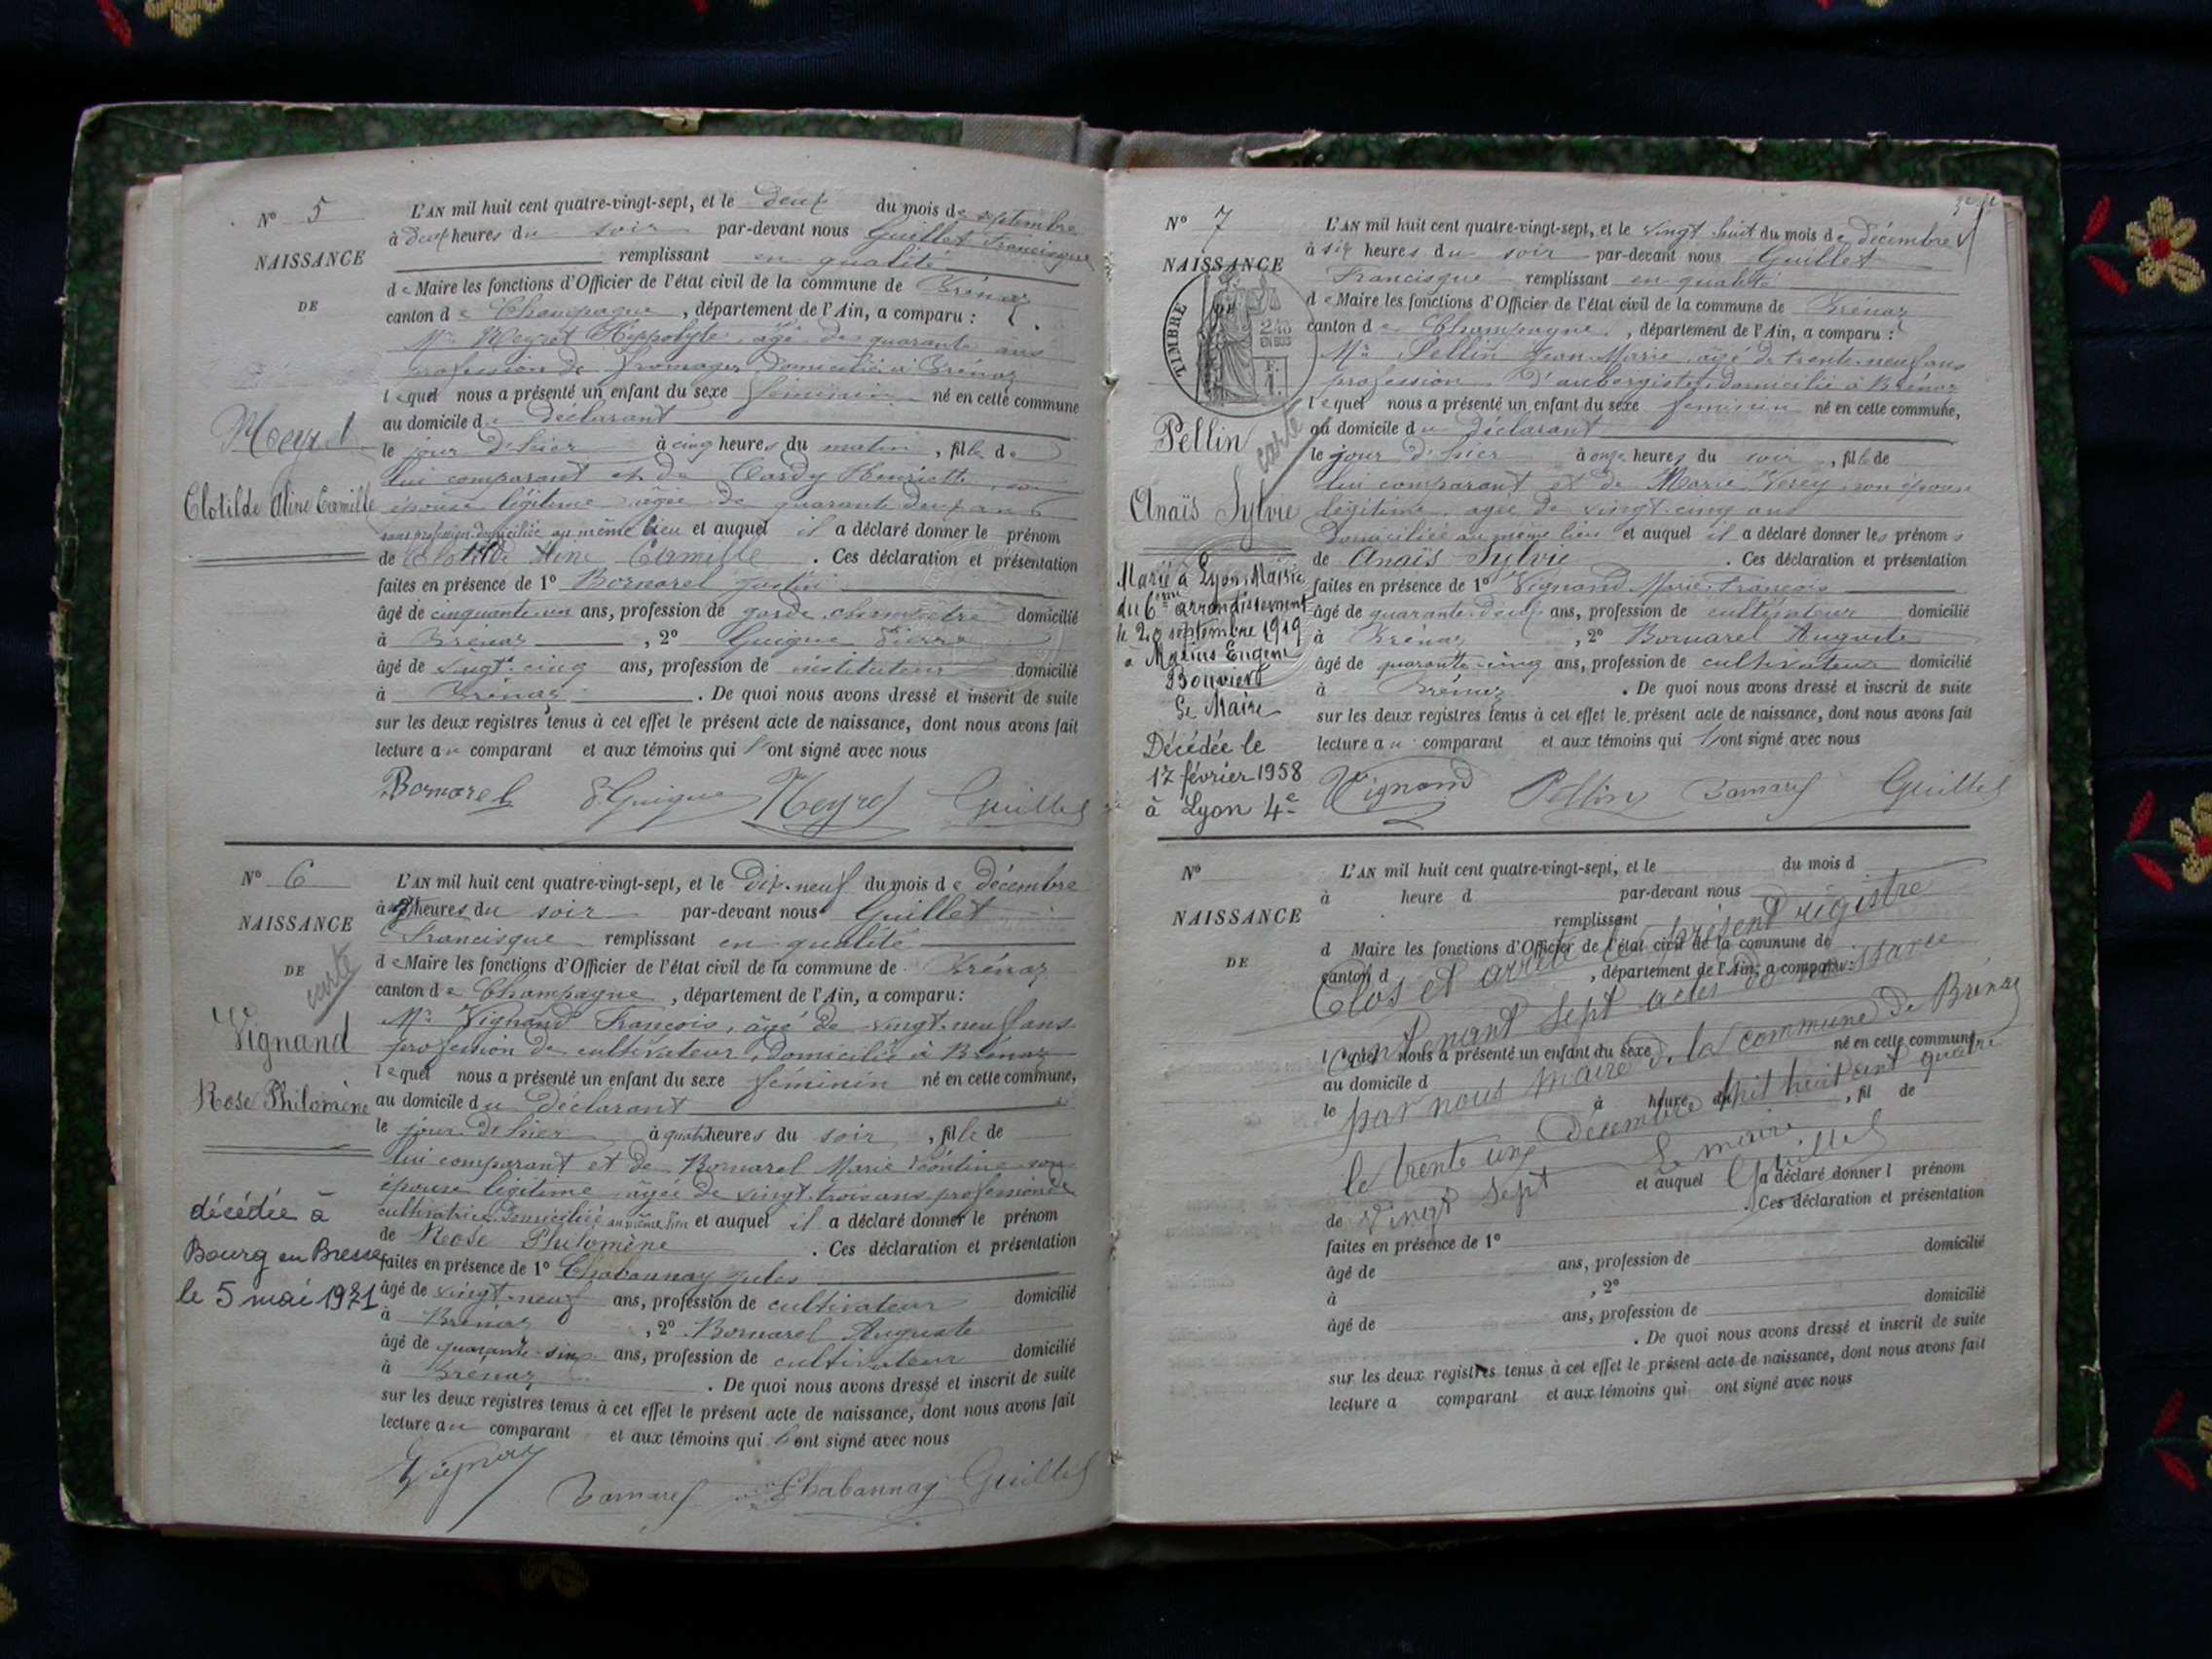 N° 5
NAISSANCE
DE
Meyret
Clotilde Aline Camille
L'AN mil huit cent quatre-vingt-sept, et le deux du mois de septembre
à deux heures du soir par-devant nous Guillet Francisque
remplissant en qualité
de Maire les fonctions d'Officier de l'état civil de la commune de Brénaz
canton de Champagne, département de l'Ain, a comparu :
Mr Meyret Hippolyte, âgé de quarante ans
profession de fromager domicilié à Brénaz
lequel nous a présenté un enfant du sexe féminin né en cette commune
au domicile du déclarant
le jour d'hier à cinq heures du matin, fille de
lui comparant et de Cardy Henriette, son
épouse légitime âgée de quarante deux ans
sans profession domiciliée au même lieu et auquel il a déclaré donner le prénom
de Clotilde Aline Camille. Ces déclaration et présentation
faites en présence de 1° Bornarel Justin
âgé de cinquante un ans, profession de garde champêtre domicilié
à Brénaz, 2° Guigue Pierre
âgé de vingt-cinq ans, profession de instituteur domicilié
à Brénaz. De quoi nous avons dressé et inscrit de suite
sur les deux registres tenus à cet effet le présent acte de naissance, dont nous avons fait
lecture au comparant et aux témoins qui l'ont signé avec nous
Bornarel Guigue Meyret Guillet
N° 6
NAISSANCE
DE
carte
Vignand
Rose Philomène
décédée à
Bourg en Bresse
le 5 mai 1971
L'AN mil huit cent quatre-vingt-sept, et le dix-neuf du mois de décembre
à heures du soir par-devant nous Guillet
Francisque remplissant en qualité
de Maire les fonctions d'Officier de l'état civil de la commune de Brénaz
canton de Champagne, département de l'Ain, a comparu :
Mr Vignand François, âgé de vingt-neuf ans
profession de cultivateur, domicilié à Brénaz
lequel nous a présenté un enfant du sexe féminin né en cette commune,
au domicile du déclarant
le jour d'hier à quatre heures du soir, fille de
lui comparant et de Bornarel Marie Léontine son
épouse légitime âgée de vingt-trois ans profession de
cultivatrice domiciliée au même lieu et auquel il a déclaré donner le prénom
de Rose Philomène. Ces déclaration et présentation
faites en présence de 1° Chabannay Jules
âgé de vingt-neuf ans, profession de cultivateur domicilié
à Brénaz, 2° Bornarel Auguste
âgé de quarante-cinq ans, profession de cultivateur domicilié
à Brénaz. De quoi nous avons dressé et inscrit de suite
sur les deux registres tenus à cet effet le présent acte de naissance, dont nous avons fait
lecture au comparant et aux témoins qui l'ont signé avec nous
Bornarel Chabannay Guillet
N° 7
NAISSANCE
TIMBRE
Pellin
carte
Anaïs Sylvie
Marié à Lyon, Mairie
du 6ème arrondissement
le 20 septembre 1919
à Marius Eugène
Bouvier
Le Maire
Décédée le
17 février 1958
à Lyon 4e
L'AN mil huit cent quatre-vingt-sept, et le vingt huit du mois de décembre
à six heures du soir par-devant nous Guillet
Francisque remplissant en qualité
de Maire les fonctions d'Officier de l'état civil de la commune de Brénaz
canton de Champagne, département de l'Ain, a comparu :
Mr Pellin Jean Marie âgé de trente-neuf ans
profession d'aubergiste, domicilié à Brénaz
lequel nous a présenté un enfant du sexe féminin né en cette commune,
au domicile du déclarant
le jour d'hier à onze heures du soir, fille de
lui comparant et de Marie Verey, son épouse
légitime, âgée de vingt-cinq ans
domiciliée au même lieu et auquel il a déclaré donner les prénoms
de Anaïs Sylvie. Ces déclaration et présentation
faites en présence de 1° Vignand Marie François
âgé de quarante-deux ans, profession de cultivateur domicilié
à Brénaz, 2° Bornarel Auguste
âgé de quarante-cinq ans, profession de cultivateur domicilié
à Brénaz. De quoi nous avons dressé et inscrit de suite
sur les deux registres tenus à cet effet le présent acte de naissance, dont nous avons fait
lecture au comparant et aux témoins qui l'ont signé avec nous
Vignand Pellin Bornarel Guillet
N°
NAISSANCE
DE
L'AN mil huit cent quatre-vingt-sept, et le du mois d
à heure d par-devant nous
remplissant
d Maire les fonctions d'Officier de l'état civil de la commune de
canton d , département de l'Ain, a comparu :
l quel nous a présenté un enfant du sexe né en cette commune,
au domicile d
le à heure du , fil de
et auquel a déclaré donner l prénom
de . Ces déclaration et présentation
faites en présence de 1°
âgé de ans, profession de domicilié
à , 2°
âgé de ans, profession de domicilié
. De quoi nous avons dressé et inscrit de suite
sur les deux registres tenus à cet effet le présent acte de naissance, dont nous avons fait
lecture a comparant et aux témoins qui ont signé avec nous
Clos et arrêté le présent registre
contenant sept actes de naissance
par nous maire de la commune de Brénaz
le trente un décembre mil huit cent quatre
vingt sept Le maire
Guillet